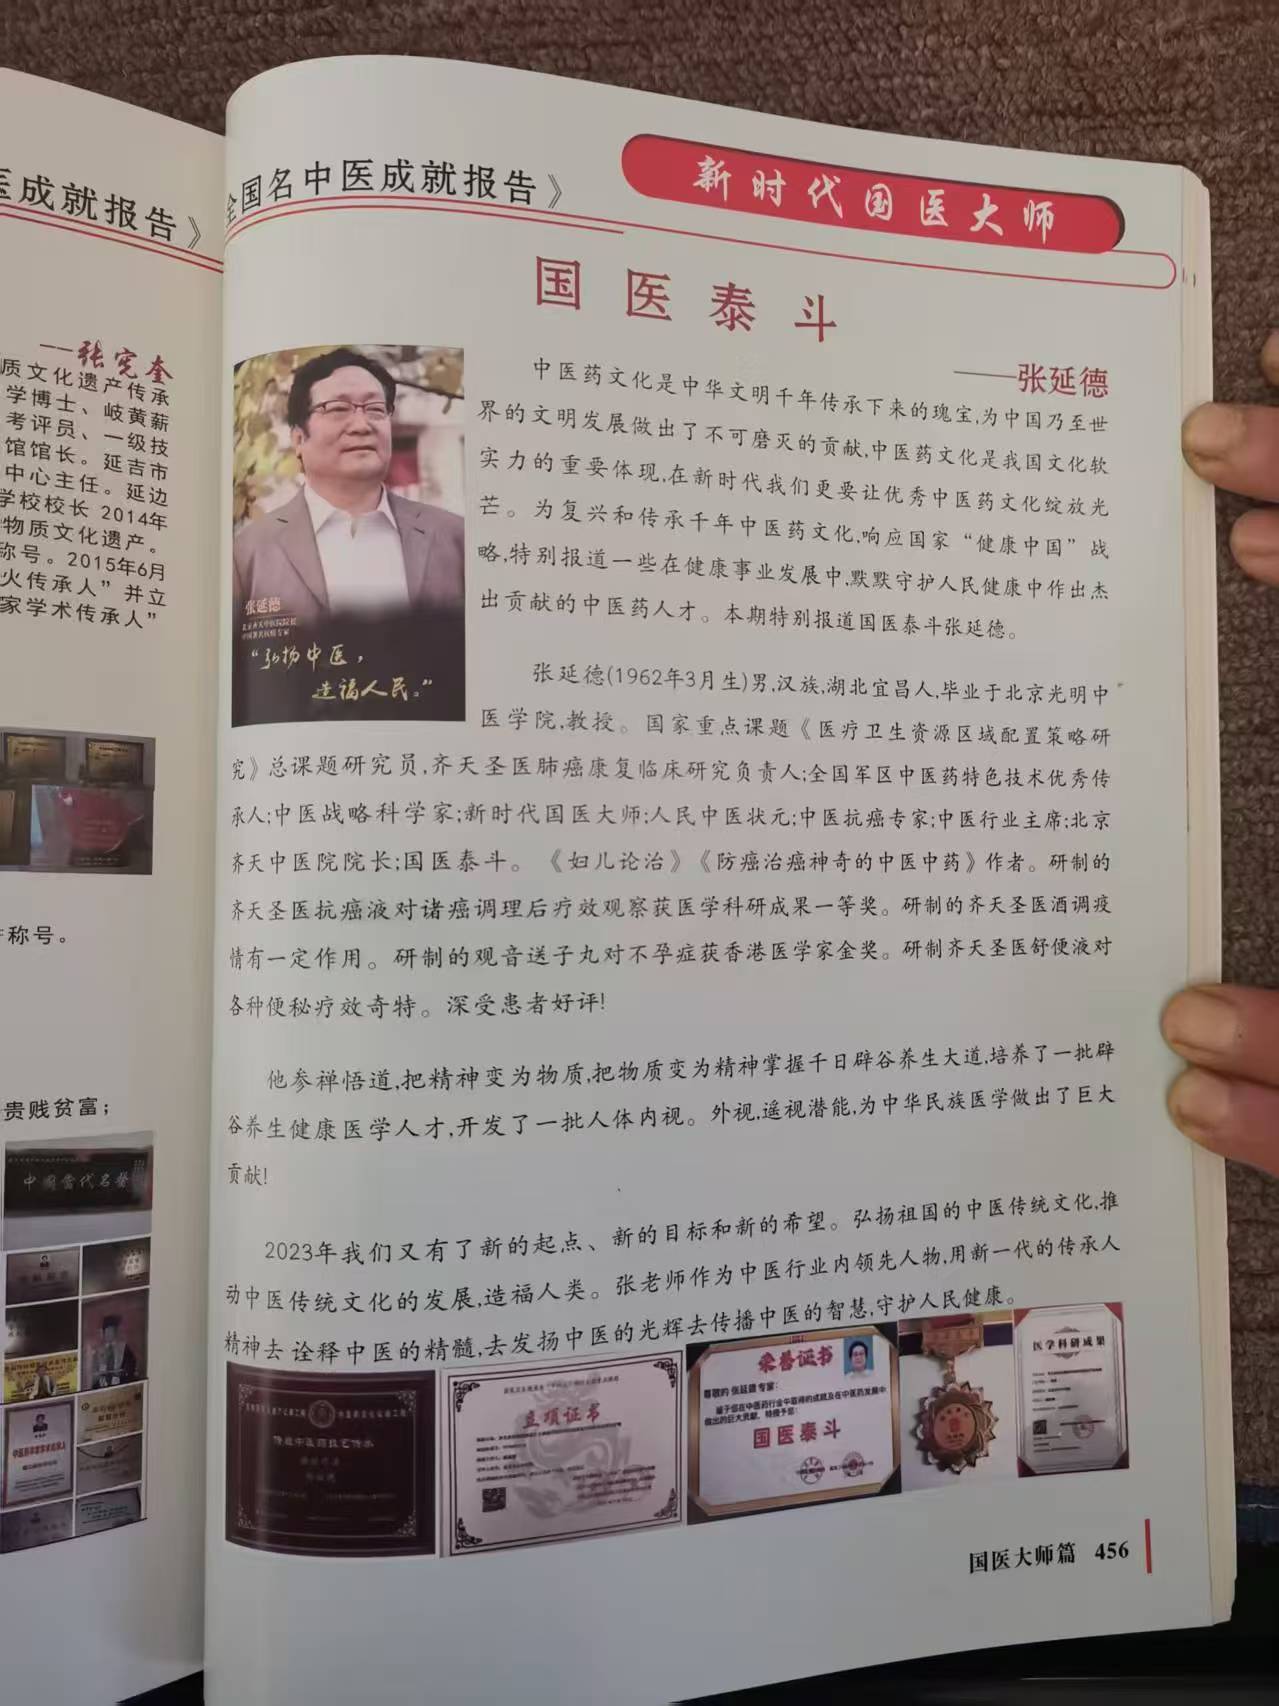 医成就报告》
——张宪奎
质文化遗产传承
学博士、岐黄薪
考评员、一级技
馆馆长。延吉市
中心主任。延边
学校校长 2014年
物质文化遗产。
称号。2015年6月
火传承人”并立
家学术传承人”
称号。
贵贱贫富；
中國當代名醫
全国名中医成就报告》
新时代国医大师
国医泰斗
——张延德
中医药文化是中华文明千年传承下来的瑰宝,为中国乃至世
界的文明发展做出了不可磨灭的贡献,中医药文化是我国文化软
实力的重要体现,在新时代我们更要让优秀中医药文化绽放光
芒。为复兴和传承千年中医药文化,响应国家“健康中国”战
略,特别报道一些在健康事业发展中,默默守护人民健康中作出杰
出贡献的中医药人才。本期特别报道国医泰斗张延德。
张延德
北京齐天中医院院长
中国著名抗癌专家
“弘扬中医，
造福人民。”
张延德(1962年3月生)男,汉族,湖北宜昌人,毕业于北京光明中
医学院,教授。国家重点课题《医疗卫生资源区域配置策略研
究》总课题研究员,齐天圣医肺癌康复临床研究负责人;全国军区中医药特色技术优秀传
承人;中医战略科学家;新时代国医大师;人民中医状元;中医抗癌专家;中医行业主席;北京
齐天中医院院长;国医泰斗。《妇儿论治》《防癌治癌神奇的中医中药》作者。研制的
齐天圣医抗癌液对诸癌调理后疗效观察获医学科研成果一等奖。研制的齐天圣医酒调疫
情有一定作用。研制的观音送子丸对不孕症获香港医学家金奖。研制齐天圣医舒便液对
各种便秘疗效奇特。深受患者好评!
他参禅悟道,把精神变为物质,把物质变为精神掌握千日辟谷养生大道,培养了一批辟
谷养生健康医学人才,开发了一批人体内视。外视,遥视潜能,为中华民族医学做出了巨大
贡献!
2023年我们又有了新的起点、新的目标和新的希望。弘扬祖国的中医传统文化,推
动中医传统文化的发展,造福人类。张老师作为中医行业内领先人物,用新一代的传承人
精神去诠释中医的精髓,去发扬中医的光辉去传播中医的智慧,守护人民健康。
传统中医药技艺传承
立项证书
荣誉证书
尊敬的 张延德专家：
鉴于您在中医药行业中取得的成就及在中医药发展中
做出的巨大贡献，特授予您：
国医泰斗
医学科研成果
国医大师篇 456